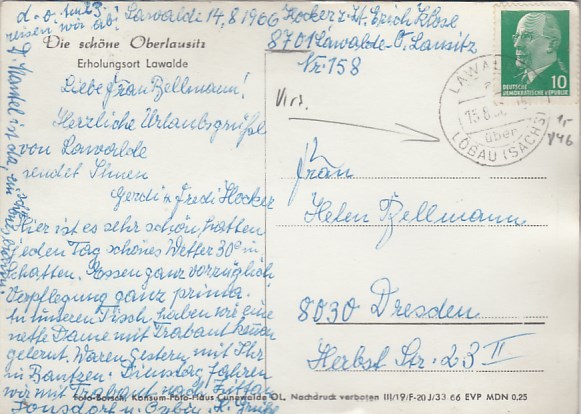 Lawalde 14.8.1966
reisen wir ab!
Die schöne Oberlausitz
Erholungsort Lawalde
Hocker z. Zt. Erich Klose
8701 Lawalde O. Lausitz
Nr. 158
Liebe Frau Bellmann!
Herzliche Urlaubsgrüße
von Lawalde
sendet Ihnen
Gerdi u. Fredi Hocker
Hier ist es sehr schön, hatten
jeden Tag schönes Wetter 30° im
Schatten. Essen ganz vorzüglich
Verpflegung ganz prima.
In unseren Tisch haben wir eine
nette Dame mit Trabant kennen
gelernt. Waren gestern mit Ihr
in Bautzen. Dienstag fahren
wir mit Trabant nach Zittau
Jonsdorf u. Oybin
DEUTSCHE
DEMOKRATISCHE REPUBLIK
10
LÖBAU (SACHS)
über
Frau
Helen Bellmann
8030 Dresden
Herbst Str. 23 II
Foto-Borsch, Konsum-Foto-Haus Cunewalde OL. Nachdruck verboten III/19/F-20 J/33 66 EVP MDN 0,25